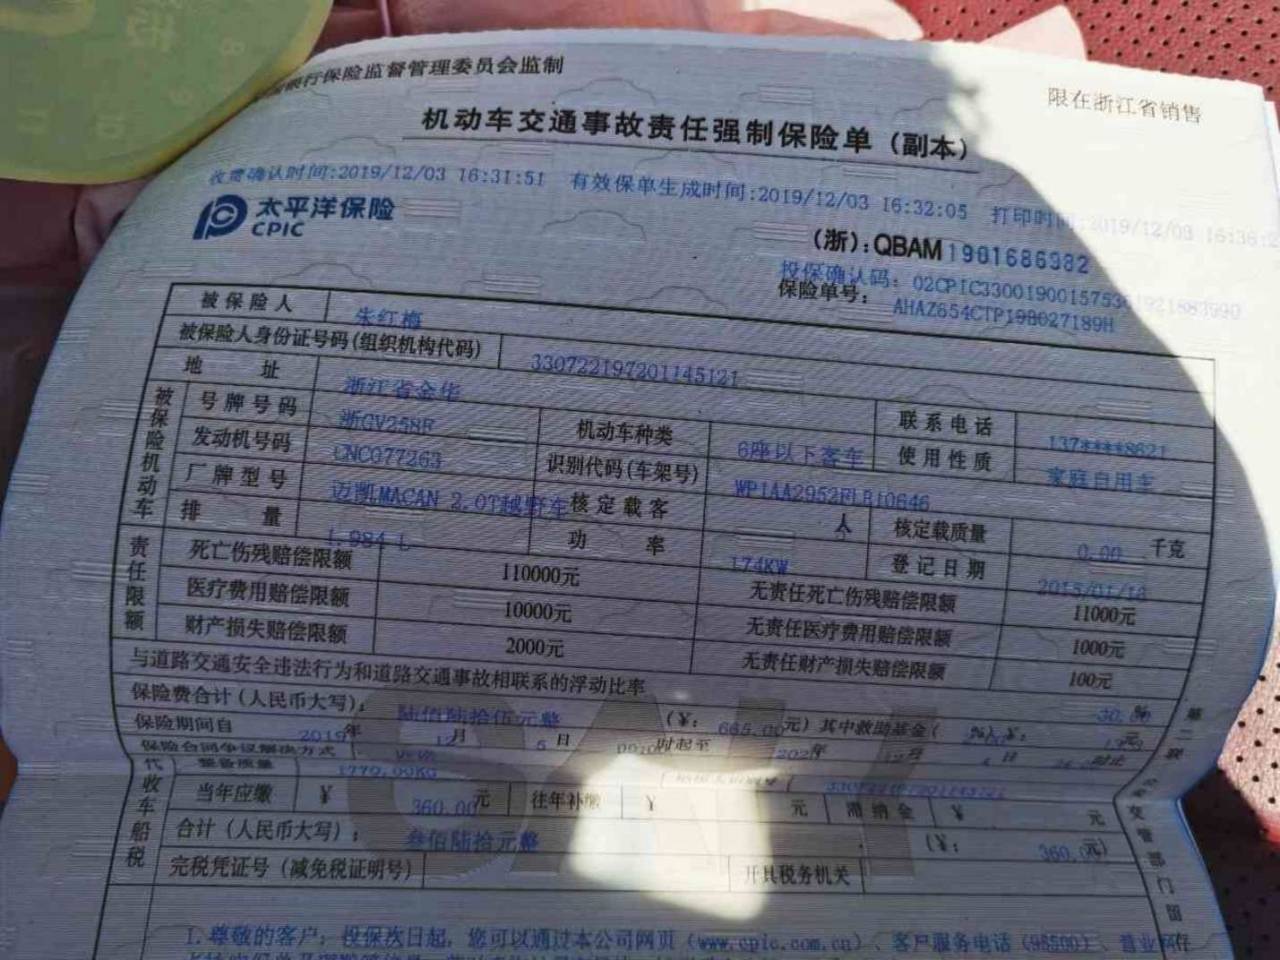 银行保险监督管理委员会监制
限在浙江省销售
机动车交通事故责任强制保险单（副本）
收费确认时间:2019/12/03 16:31:51 有效保单生成时间:2019/12/03 16:32:05 打印时间:2019/12/03 16:36:2
太平洋保险
CPIC
(浙):QBAM1901686982
投保确认码：02CPIC330019001575
保险单号：AHAZ654CTP19B027189H
被保险人 朱红梅
被保险人身份证号码(组织机构代码) 330722197201145121
地 址 浙江省金华 联系电话 137****8621
被保险机动车
号牌号码 浙GV258F 机动车种类 6座以下客车 使用性质 家庭自用车
发动机号码 CNC077263 识别代码(车架号)
厂牌型号 迈凯MACAN 2.0T越野车 核定载客 人 核定载质量 0.00 千克
排 量 1.984 L 功 率 174KW 登记日期
责任限额
死亡伤残赔偿限额 110000元 无责任死亡伤残赔偿限额 11000元
医疗费用赔偿限额 10000元 无责任医疗费用赔偿限额 1000元
财产损失赔偿限额 2000元 无责任财产损失赔偿限额 100元
与道路交通安全违法行为和道路交通事故相联系的浮动比率 %
保险费合计(人民币大写)：陆佰陆拾伍元整 (￥：665.00元) 其中救助基金( %) ￥： 元
保险期间自 2019年 12月 5日 时起至 年 月 日
保险合同争议解决方式
代收车船税
整备质量 1770.00KG
当年应缴 ￥ 360.00元 往年补缴 ￥ 元 滞纳金 ￥ 元
合计(人民币大写)：叁佰陆拾元整 (￥： 360.00元)
完税凭证号(减免税证明号) 开具税务机关
第二联
交管部门留存
1.尊敬的客户：投保次日起，您可以通过本公司网页(www.cpic.com.cn)、客户服务电话(95500)、营业网